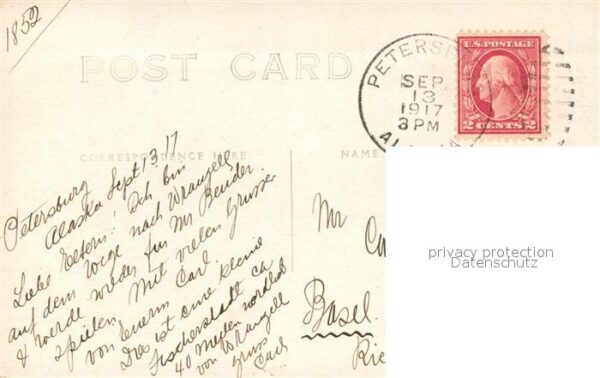 1852
POST CARD
CORRESPONDENCE HERE
NAME
PETERSBU
SEP
13
1917
3 PM
ALASKA
U.S. POSTAGE
2 CENTS 2
Petersburg
Alaska Sept 13. 17
Liebe Eltern! Ich bin
auf dem Wege nach Wrangell
& werde wieder für Mr Bender
spielen. Mit vielen Grüssen
von Euerm Carl.
Dies ist eine kleine
Fischerstadt ca
40 Meilen nördlich
von Wrangell
Gruss
Carl
Mr
Basel
privacy protection
Datenschutz